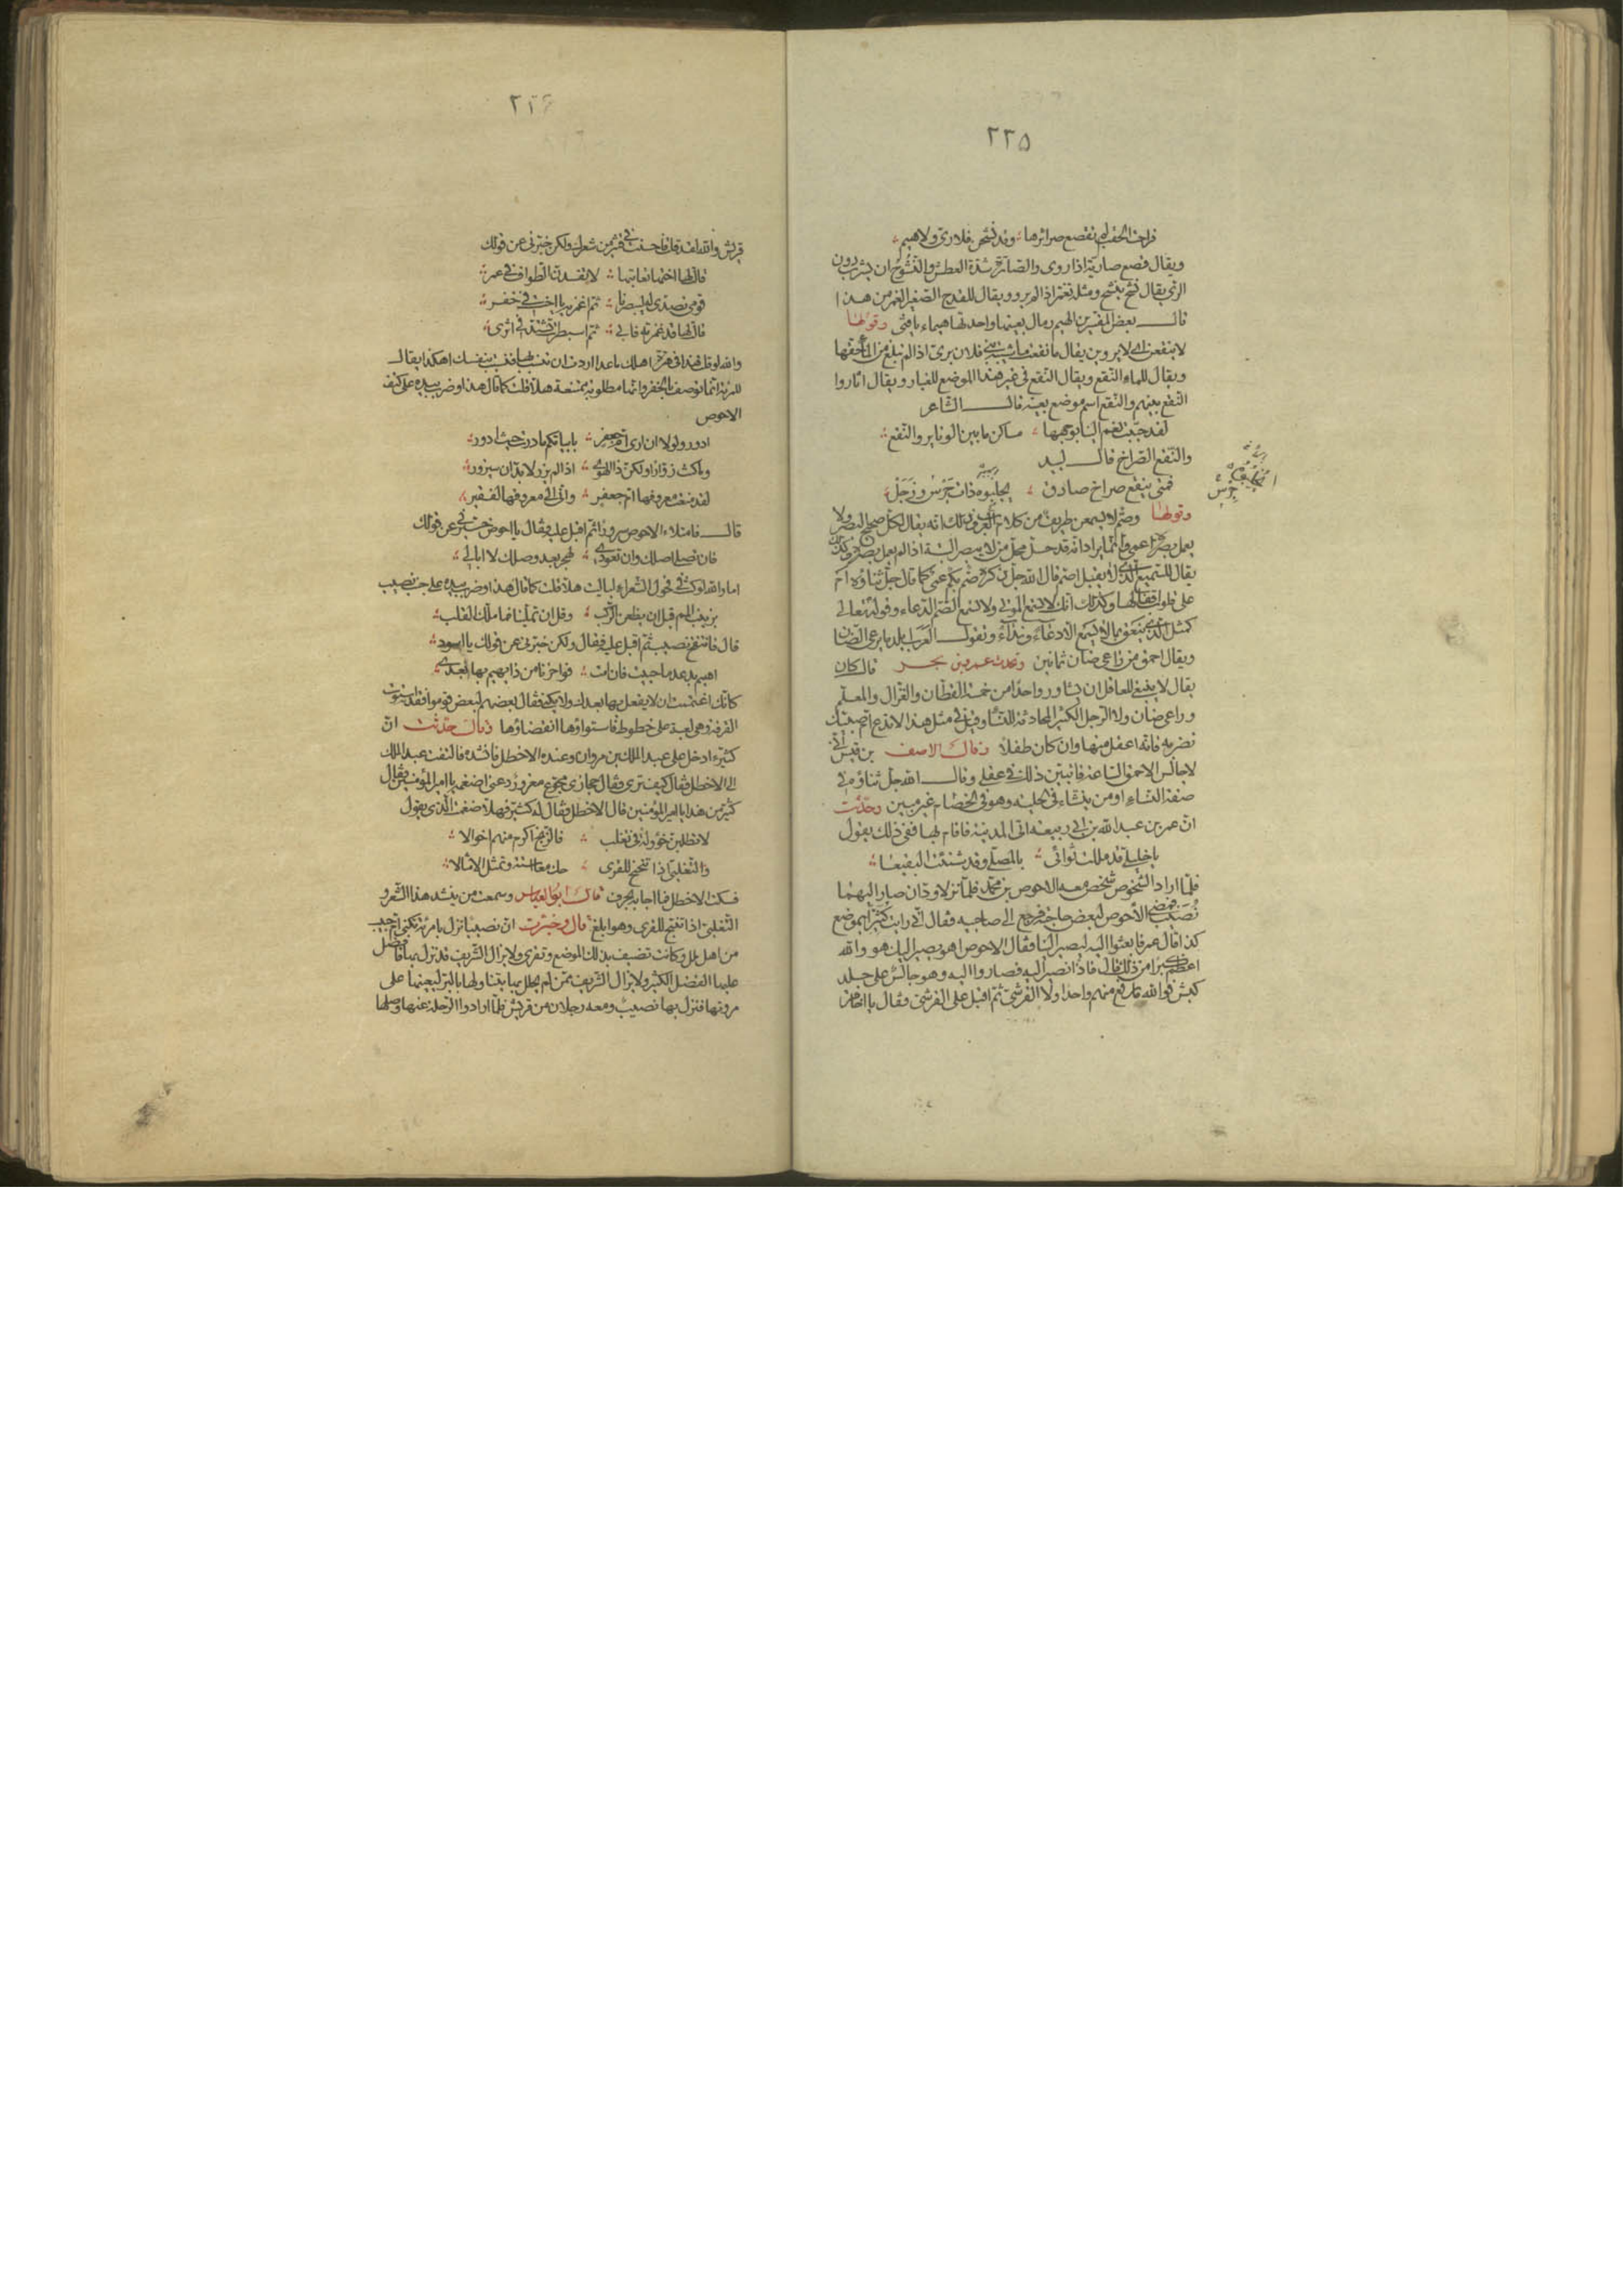 ٢٢٥
فراحت الحقب لم تقصع صرائرها وقد نشحن فلا ري ولا هيم
ويقال قصع صارته اذا روى والصارة شدة العطش والنشوح ان يشرب دون
الري يقال نشح ينشح ومثله تغمر اذا لم يرو ويقال للقدح الصغير الغمر من هذا
قال بعض المفسرين الهيم رمال بعينها واحدتها هيماء يا فتى وقولها
لا ينقعن اى لا يروين يقال ما نقعت
ويقال للماء النقع ويقال النقع في غير هذا الموضع للغبار ويقال اثاروا
النقع بينهم والنقع اسم موضع بعينه قال الشاعر
لقد حببت نعم الينا بوجهها مساكن ما بين الوتاير والنقع
والنقع الصراخ قال لبيد
فمتى ينقع صراخ صادق يجلبوه ذات جرس وزجل
وقولها وصم لا يسمعن طريف من كلام العرب وذلك انه يقال لكل صحيح البصر ولا
يعمل بصره اعمى وانما يراد انه قد حل محل من لا يبصر البتة اذا لم يعمل بصره وكذلك
يقال للسميع الذي لا يقبل اصم قال الله جل ذكره صم بكم عمى كما قال جل ثناؤه ام
على قلوب اقفالها وكذلك انك لا تسمع الموتى ولا تسمع الصم الدعاء وقوله تعالى
كمثل الذي ينعق بما لا يسمع الا دعاء ونداء وتقول العرب ابلد ما يرعى الضان
ويقال احمق من راعى ضان ثمانين وتحدث عمرو بن بحر قال كان
يقال لا ينبغي للعاقل ان يشاور واحدا من خمسة القطان والغزال والمعلم
وراعى ضان ولا الرجل الكثير المحادثة للنساء وقيل في مثل هذا لا تدع ام صبيك
تضربه فانه اعقل منها وان كان طفلا وقال الاحنف بن قيس انى
لاجالس الاحمق الساعة فاتبين ذلك في عقلى وقال الله جل ثناؤه في
صفة النساء او من ينشاء في الحلية وهو في الخصام غير مبين وحدثت
ان عمر بن عبد الله بن ابي ربيعة اتى المدينة فاقام بها ففي ذلك يقول
يا خليلي قد مللت ثوائى بالمصلى وقد شنئت البقيعا
فلما اراد الشخوص شخص معه الاحوص بن محمد فلما نزلا ودان صار اليهما
نصيب فمضى الاحوص لبعض حاجته فرجع الى صاحبيه فقال انى رايت كثيرا بموضع
كذا قال عمر فابعثوا اليه ليصير الينا فقال الاحوص اهو يصير اليك هو والله
اعظم كبرا من ذلك قال فاذا نصير اليه فصاروا اليه وهو جالس على جلد
كبش فوالله ما رفع منهم واحدا ولا القرشى ثم اقبل على القرشى فقال يا اخا
٢٢٦
قريش والله لقد قلت فاحسنت في كثير من شعرك ولكن خبرني عن قولك
قالت لها اختها تعاتبها لا تفسدن الطواف في عمر
قومى تصدى له ليبصرنا ثم اغمزيه يا اخت في خفر
قالت لها قد غمزته فابى ثم اسبطرت تشتد في اثرى
والله لو قلت هذا في هرة اهلك ما عدا اردت ان تنسب بها فنسبت بنفسك اهكذا يقال
للمرءة انما توصف بالخفر وانها مطلوبة ممتنعة هلا قلت كما قال هذا وضرب بيده على كتف
الاحوص
ادور ولولا ان ارى ام جعفر بابياتكم ما درت حيث ادور
وما كنت زوارا ولكن ذا الهوى اذا لم يزر لا بد ان سيزور
لقد منعت معروفها ام جعفر وانى الى معروفها لفقير
قال فامتلاء الاحوص سرورا ثم اقبل عليه فقال يا احوص خبرني عن قولك
فان تصلى اصلك وان تعودى لهجر بعد وصلك لا ابالي
اما والله لو كنت من فحول الشعراء لباليت هلا قلت كما قال هذا وضرب بيده على جنب نصيب
بزينب المم قبل ان يظعن الركب وقل ان تملينا فما ملك القلب
قال فانتفخ نصيب ثم اقبل عليه فقال ولكن خبرني عن قولك يا اسود
اهيم بدعد ما حييت فان امت فواحزنا من ذا يهيم بها بعدى
كانك اغتممت ان لا يفعل بها بعدك ولا يكنى فقال بعضهم لبعض قوموا فقد استوت
القرفة وهي لعبة على خطوط فاستواؤها انقضاؤها وقال حدثت ان
كثيرا دخل على عبد الملك بن مروان وعنده الاخطل فانشده فالتفت عبد الملك
الى الاخطل فقال كيف ترى فقال حجازى مجوع مقرور دعنى اضغمه يا امير المؤمنين فقال
كثير من هذا يا امير المؤمنين قال الاخطل فقال له كثير فهلا ضغمت الذي يقول
لا تطلبن خؤولة في تغلب فالزنج اكرم منهم اخوالا
والتغلبى اذا تنحنح للقرى حك استه وتمثل الامثالا
فسكت الاخطل فما اجابه بحرف قال ابو العباس وسمعت من ينشد هذا الشعر و
التغلبى اذا تنبح للقرى وهو ابلغ قال وخبرت ان نصيبا نزل بامرءة تكنى ام حبيب
من اهل ملل وكانت تضيف بذلك الموضع وتقرى ولا يزال الشريف قد نزل بها فافضل
عليها الفضل الكثير ولا يزال الشريف ممن لم يحلل بها يتناولها بالبر ليعينها على
مروتها فنزل بها نصيب ومعه رجلان من قريش فلما ارادوا الرحلة عنها وصلها